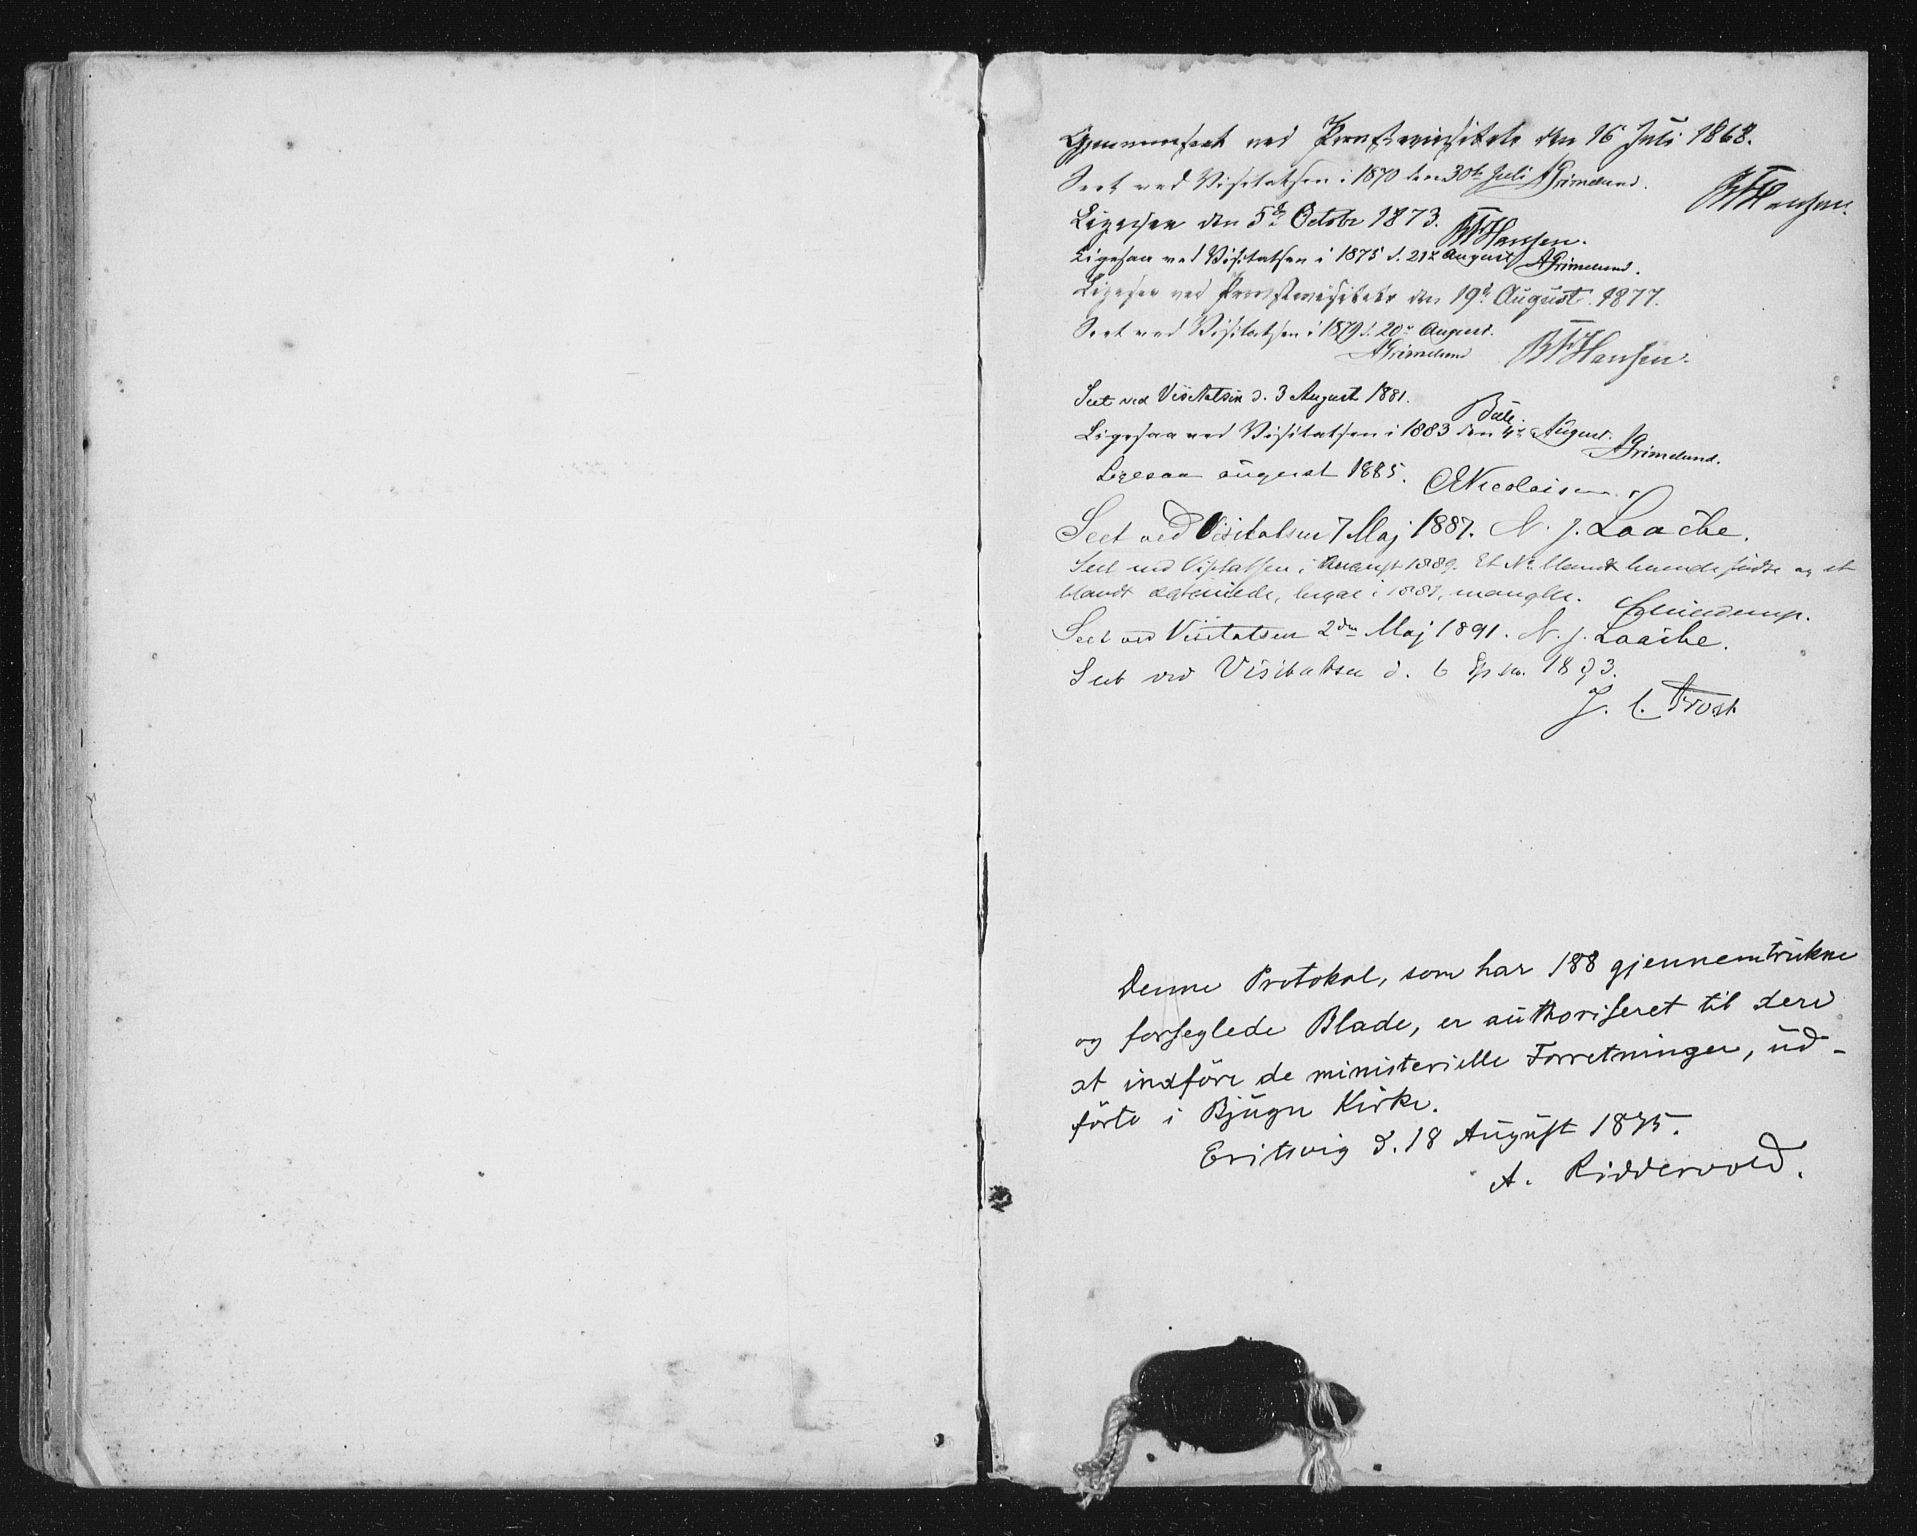 Gjennemseet ved Provstevisitats den 16 Juli 1868.
BHansen.
Seet ved Visitatsen i 1870 den 30te Juli AGrimelund.
Ligesaa den 5te Octobr 1873. Hansen.
Ligesaa ved Visitatsen i 1875 d. 21de August AGrimelund.
Ligesaa ved Provstevisitats den 19de August 1877.
Hansen.
Seet ved Visitatsen i 1879 d. 20de August.
AGrimelund
Seet ved Visitatsen d. 3 August 1881.
Ligesaa ved Visitatsen i 1883 den 4de August.
AGrimelund.
Ligesaa august 1885. Nicolaisen
Seet ved Visitatsen 7 Maj 1887. N. J. Laache.
Seet ved Visitatsen i August 1889. Et No blandt fødte og et
blandt i 1887, mangler.
Seet ved Visitatsen 2den Maj 1891. N. J. Laache.
Seet ved Visitatsen d. 6 1893.
J. C. Frost
Denne Protokol, som har 188 gjennemtrukne
og forseglede Blade, er authoriseret til deri
at indføre de ministerielle Forretninger, ud-
førte i Bjugn Kirke.
d. 18 August 1875.
A. Ridderwold.